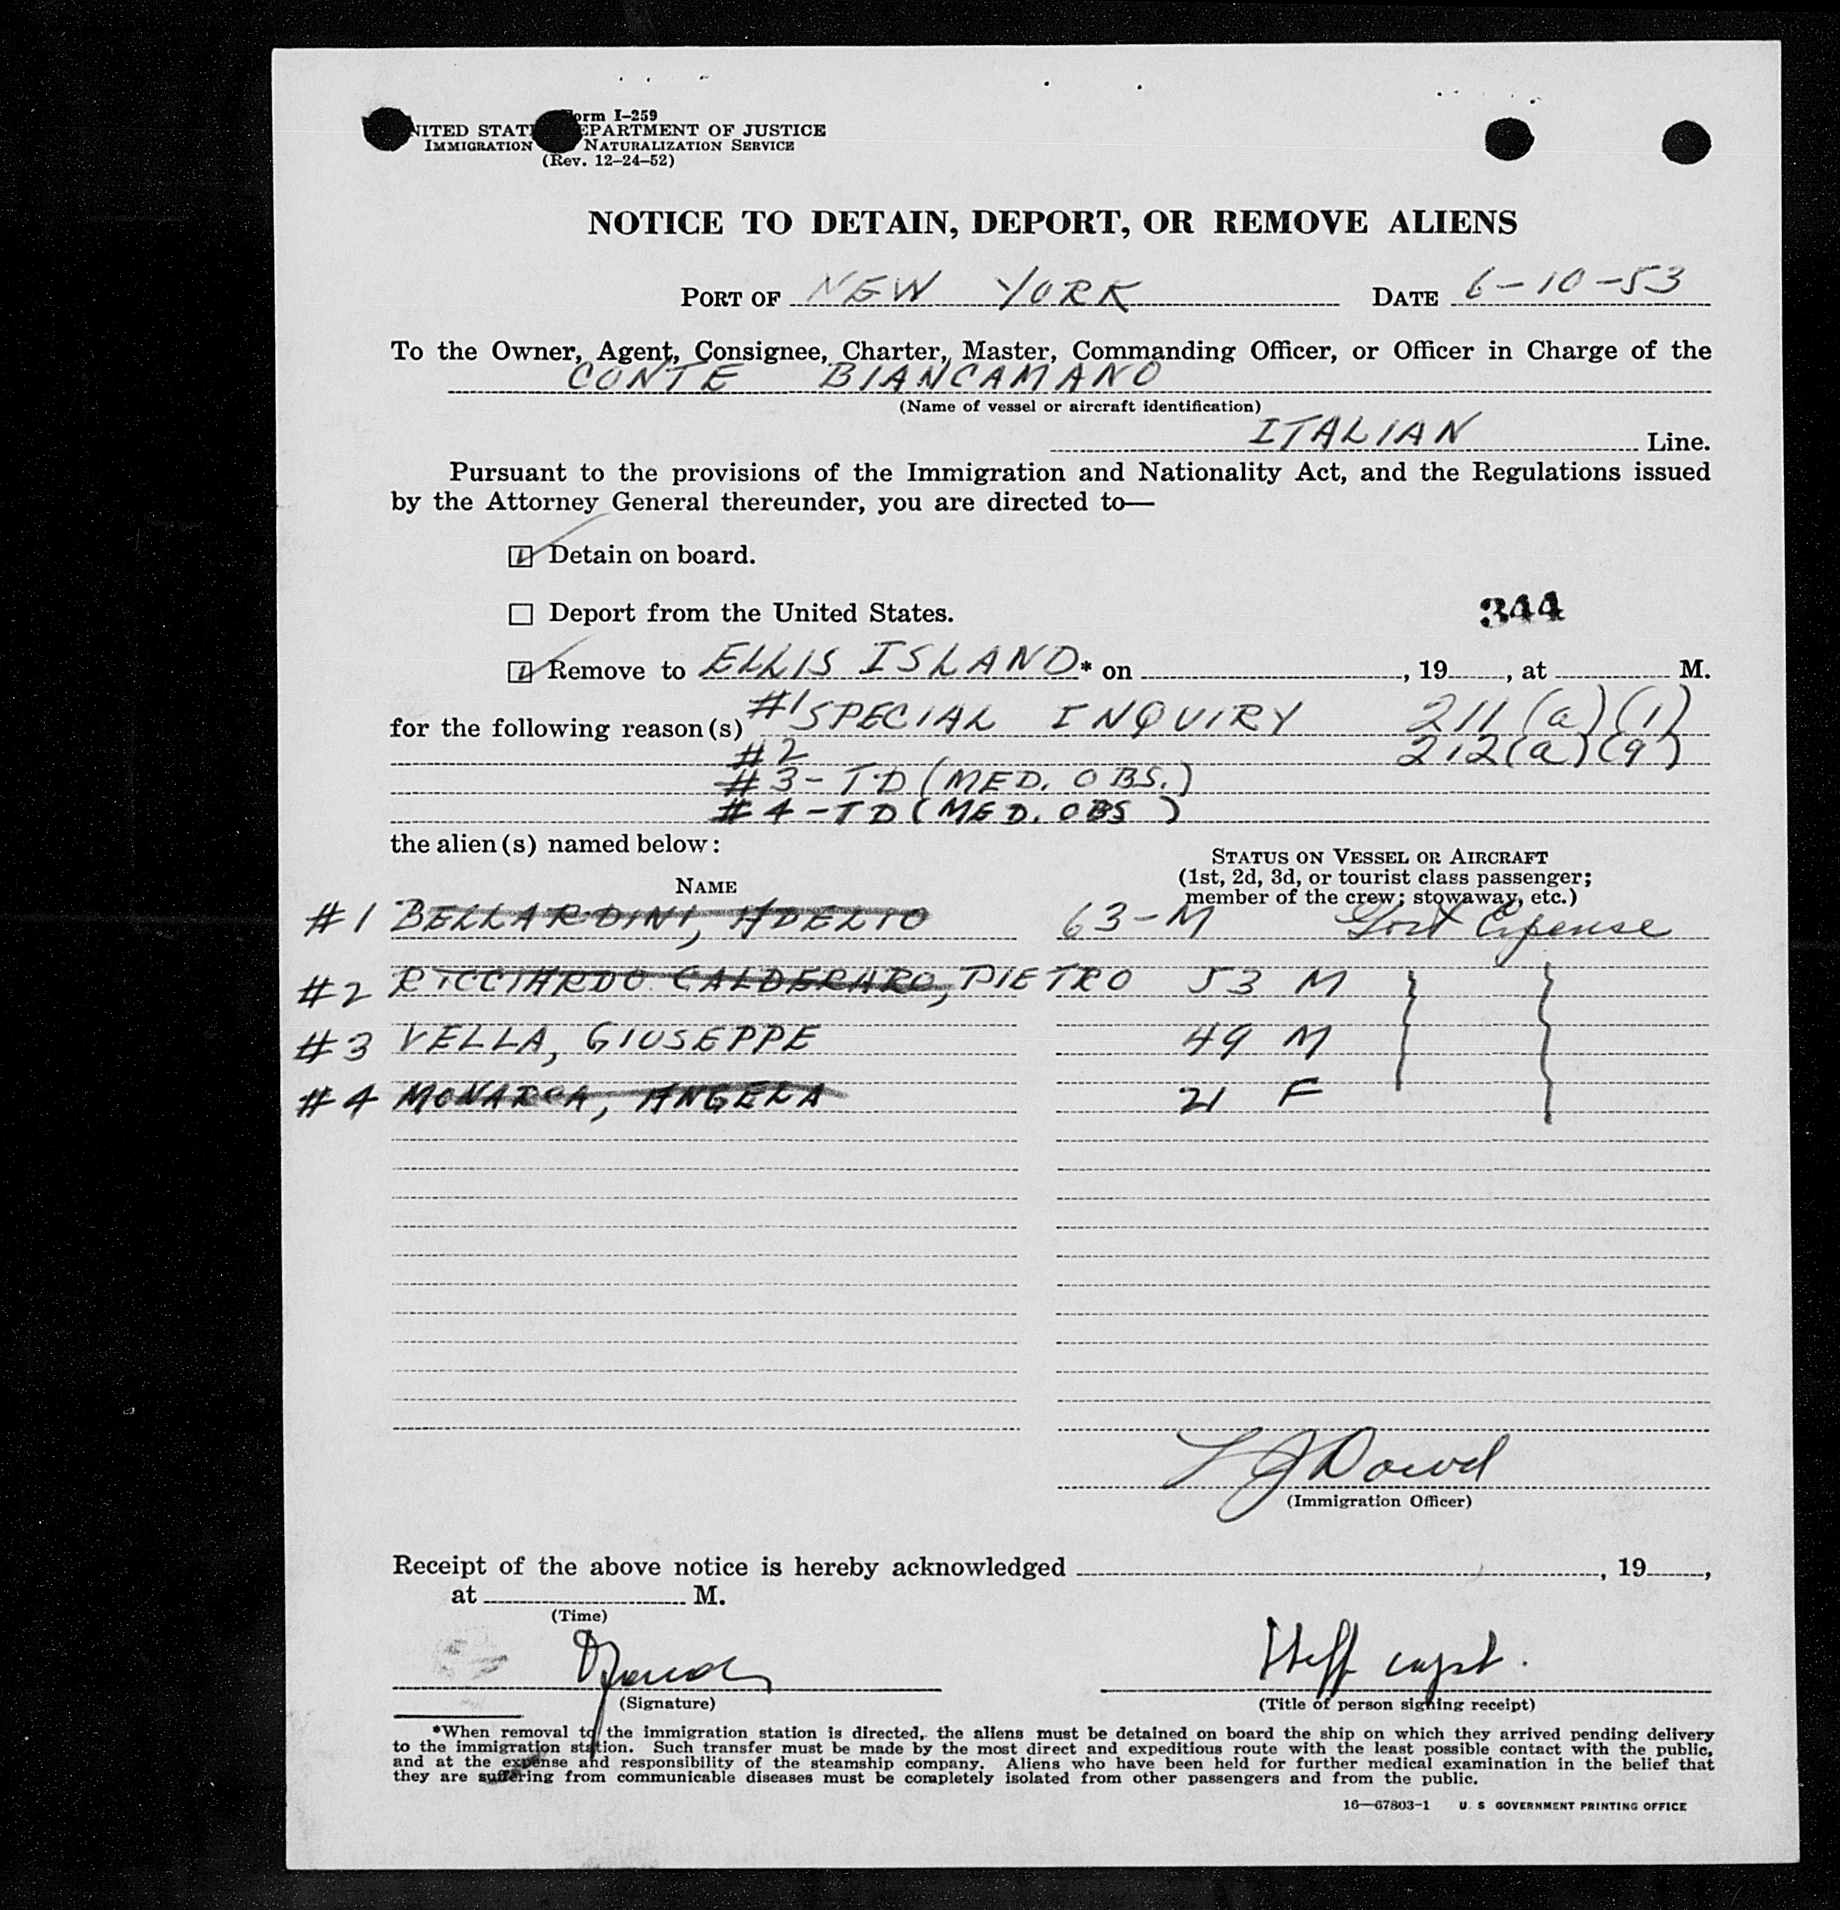 Form I-259
UNITED STATES DEPARTMENT OF JUSTICE
IMMIGRATION NATURALIZATION SERVICE
(Rev. 12-24-52)
NOTICE TO DETAIN, DEPORT, OR REMOVE ALIENS
PORT OF NEW YORK DATE 6-10-53
To the Owner, Agent, Consignee, Charter, Master, Commanding Officer, or Officer in Charge of the
CONTE BIANCAMANO
(Name of vessel or aircraft identification)
ITALIAN Line.
Pursuant to the provisions of the Immigration and Nationality Act, and the Regulations issued
by the Attorney General thereunder, you are directed to—
Detain on board.
Deport from the United States.
344
Remove to ELLIS ISLAND* on , 19 , at M.
for the following reason(s) #1 SPECIAL INQUIRY 211(a)(1)
#2 212(a)(9)
#3-TD (MED. OBS.)
#4-TD (MED. OBS )
the alien(s) named below:
STATUS ON VESSEL OR AIRCRAFT
(1st, 2d, 3d, or tourist class passenger;
member of the crew; stowaway, etc.)
NAME
#1 BELLARDINI, ADELIO 63-M Govt Expense
#2 RICCIARDO CALDERARO, PIETRO 53 M
#3 VELLA, GIUSEPPE 49 M
#4 MONARCA, ANGELA 21 F
L J Dowd
(Immigration Officer)
Receipt of the above notice is hereby acknowledged , 19 ,
at M.
(Time)
Staff capt.
(Signature) (Title of person signing receipt)
*When removal to the immigration station is directed, the aliens must be detained on board the ship on which they arrived pending delivery
to the immigration station. Such transfer must be made by the most direct and expeditious route with the least possible contact with the public,
and at the expense and responsibility of the steamship company. Aliens who have been held for further medical examination in the belief that
they are suffering from communicable diseases must be completely isolated from other passengers and from the public.
16—67803-1 U. S GOVERNMENT PRINTING OFFICE